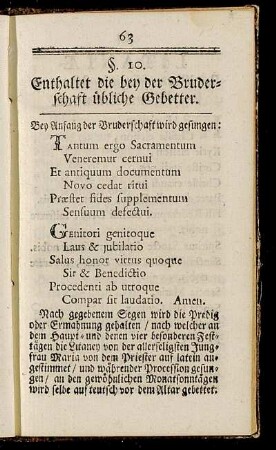 63
§. 10.
Enthaltet die bey der Bruder-
schaft übliche Gebetter.
Bey Anfang der Bruderschaft wird gesungen:
Tantum ergo Sacramentum
Veneremur cernui
Et antiquum documentum
Novo cedat ritui
Præstet fides supplementum
Sensuum defectui.
Genitori genitoque
Laus & jubilatio
Salus honor virtus quoque
Sit & Benedictio
Procedenti ab utroque
Compar sit laudatio. Amen.
Nach gegebenem Segen wird die Predig
oder Ermahnung gehalten / nach welcher an
dem Haupt- und denen vier besonderen Fest-
tägen die Litaney von der allerseligsten Jung-
frau Maria von dem Priester auf latein an-
gestimmet / und während der Procession gesun-
gen / an den gewöhnlichen Monatsonntägen
wird selbe auf teutsch vor dem Altar gebettet.